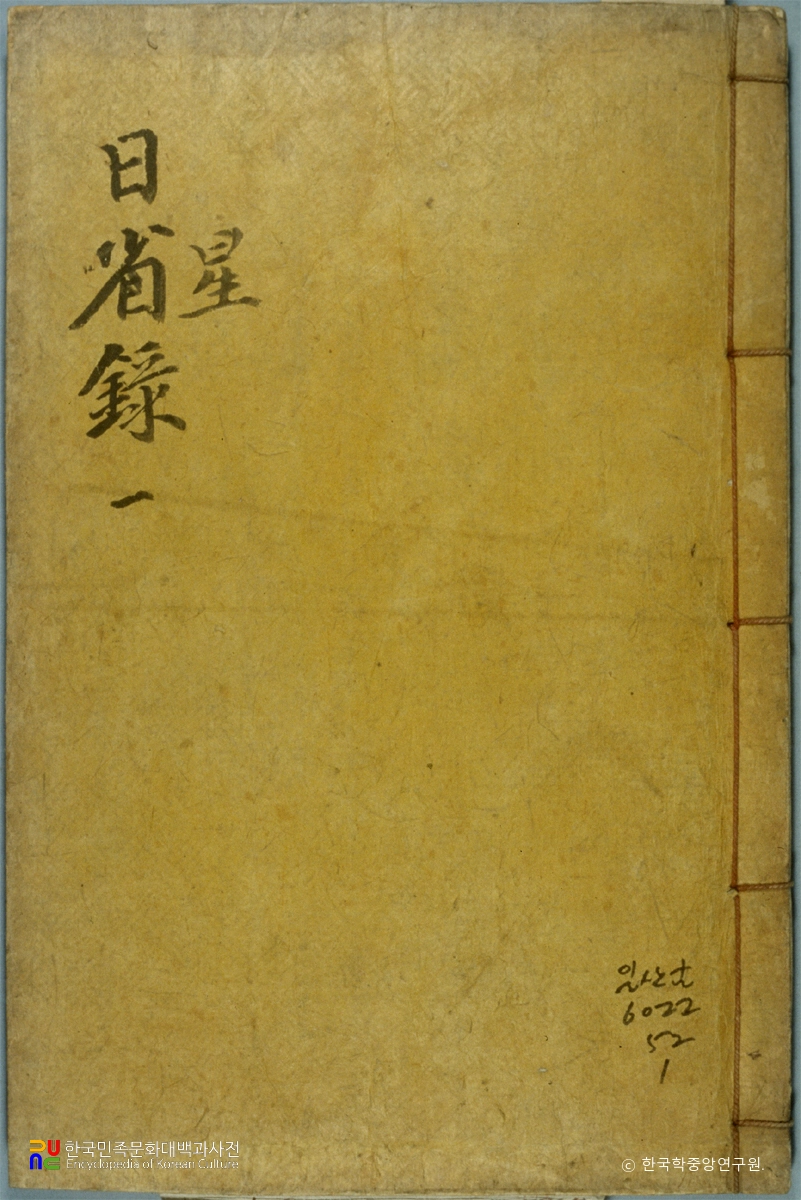 日省錄 一
星
일산古
6022
52
1
한국민족문화대백과사전
Encyclopedia of Korean Culture
© 한국학중앙연구원.